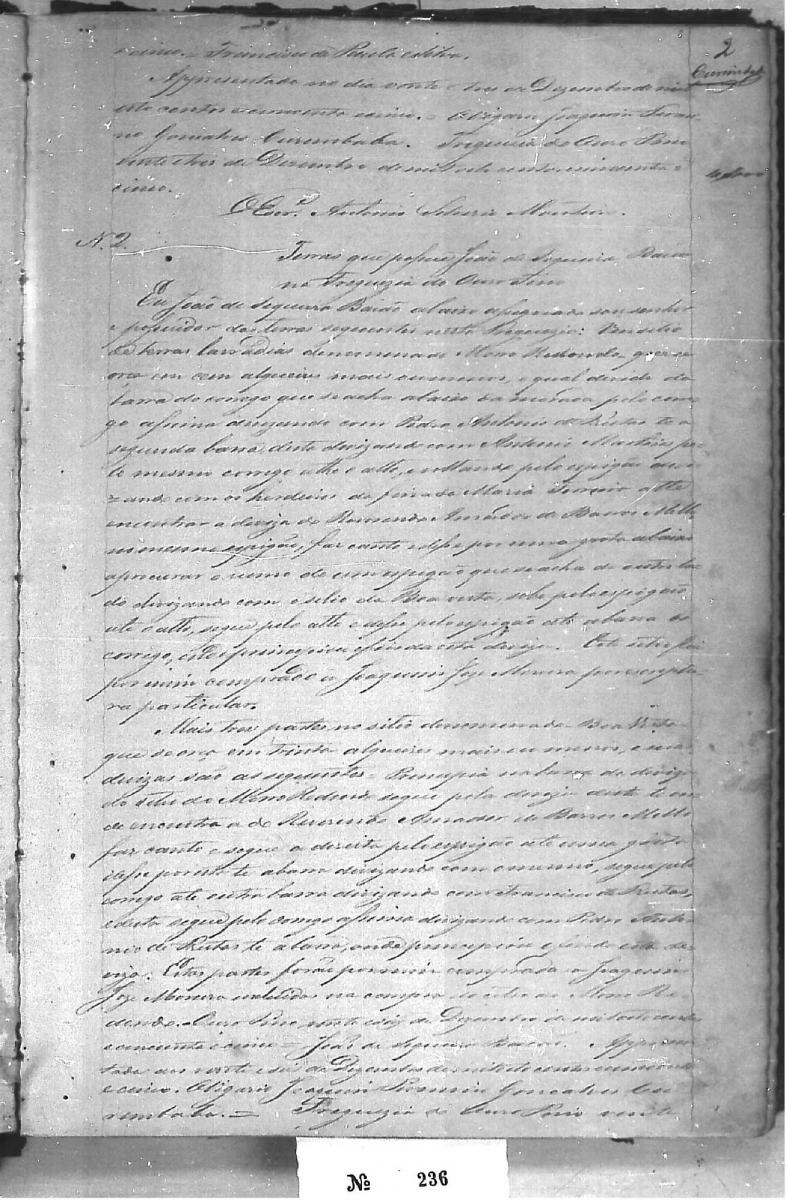 e cinco. = Francisco de Paula e Silva.
2
Appresentado no dia vinte e tres de Dezembro de mil
oito centos e cincoenta e cinco. = Vigario Joaquim
no Gonsalves Curimbaba. Freguezia do Ouro Fino
vinte e tres de Dezembro de mil oito centos e cincoenta e
cinco.
O Escr.m Antonio Silverio Monteiro.
N. 2.
Terras que possue João de Siqueira Baião
na Freguezia do Ouro Fino
Eu João de Sequeira Baião abaixo assignado sou senhor
e possuidor das terras seguintes nesta Freguezia: Um sitio
de terras lavradias denominado Morro Redondo, que se
orça em cem alqueires mais ou menos, o qual divide da
barra do corrego que se acha abaixo da morada pelo corre
go assima divizando com Pedro Antonio de Freitas te a
segunda barra, desta divizando com Antonio Martins pe
lo mesmo corrego athe o alto, e voltando pelo espigão divi
zando com os herdeiros da finada Maria athe
encontrar a diviza do Reverendo Amador de Barros Mello
no mesmo espigão, faz canto e desse por uma grota abaixo
a procurar o rumo de um espigão que se acha do outro la
do divizando com o sitio da Boa vista, sobe pelo espigão
ate o alto, segue pelo alto e desse pelo espigão até a barra do
corrego, onde principiou e finda esta diviza. Este sitio foi
por mim comprado a Joaquim Joze Moreira por escriptu
ra particular.
Mais tres partes no sitio denominado Boa Vista
que se orça em trinta alqueires mais ou menos, e suas
divizas são as seguintes = Principia na barra da diviza
do sitio do Morro Redondo segue pela diviza deste te on
de encontra a do Reverendo Amador de Barros Mello
faz canto e segue a direita pelo espigão ate uma grota
desse por esta te a barra divizando com o mesmo, segue pelo
corrego até outra barra divizando com Francisco de Freitas,
e desta segue pelo corrego assima divizando com Pedro Anto
nio de Freitas te a barra, onde principiou e finda esta di
viza. Estas partes forão por mim compradas a Joaquim
Joze Moreira incluidas na compra do sitio do Morro Re
dondo. Ouro Fino, vinte e dois de Dezembro de mil oito centos
e cincoenta e cinco = João de Siqueira Baião. Appresen
tado aos vinte e tres de Dezembro de mil oito centos e cincoenta
e cinco. Vigario Joaquim Gonsalves Cu
rimbaba. = Freguezia do Ouro Fino vinte
No 236